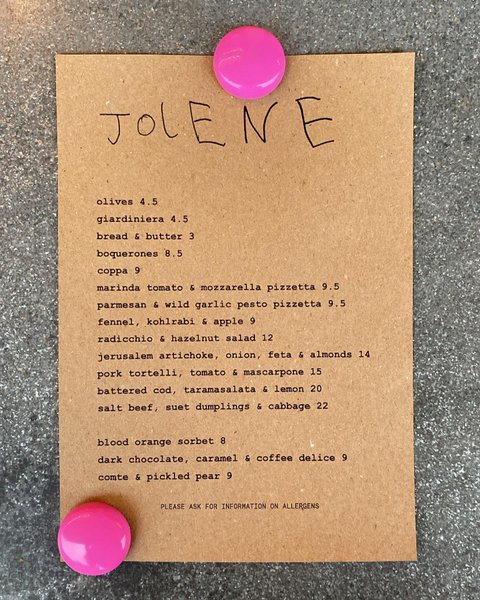 JOLENE
olives 4.5
giardiniera 4.5
bread & butter 3
boquerones 8.5
coppa 9
marinda tomato & mozzarella pizzetta 9.5
parmesan & wild garlic pesto pizzetta 9.5
fennel, kohlrabi & apple 9
radicchio & hazelnut salad 12
jerusalem artichoke, onion, feta & almonds 14
pork tortelli, tomato & mascarpone 15
battered cod, taramasalata & lemon 20
salt beef, suet dumplings & cabbage 22
blood orange sorbet 8
dark chocolate, caramel & coffee delice 9
comte & pickled pear 9
PLEASE ASK FOR INFORMATION ON ALLERGENS